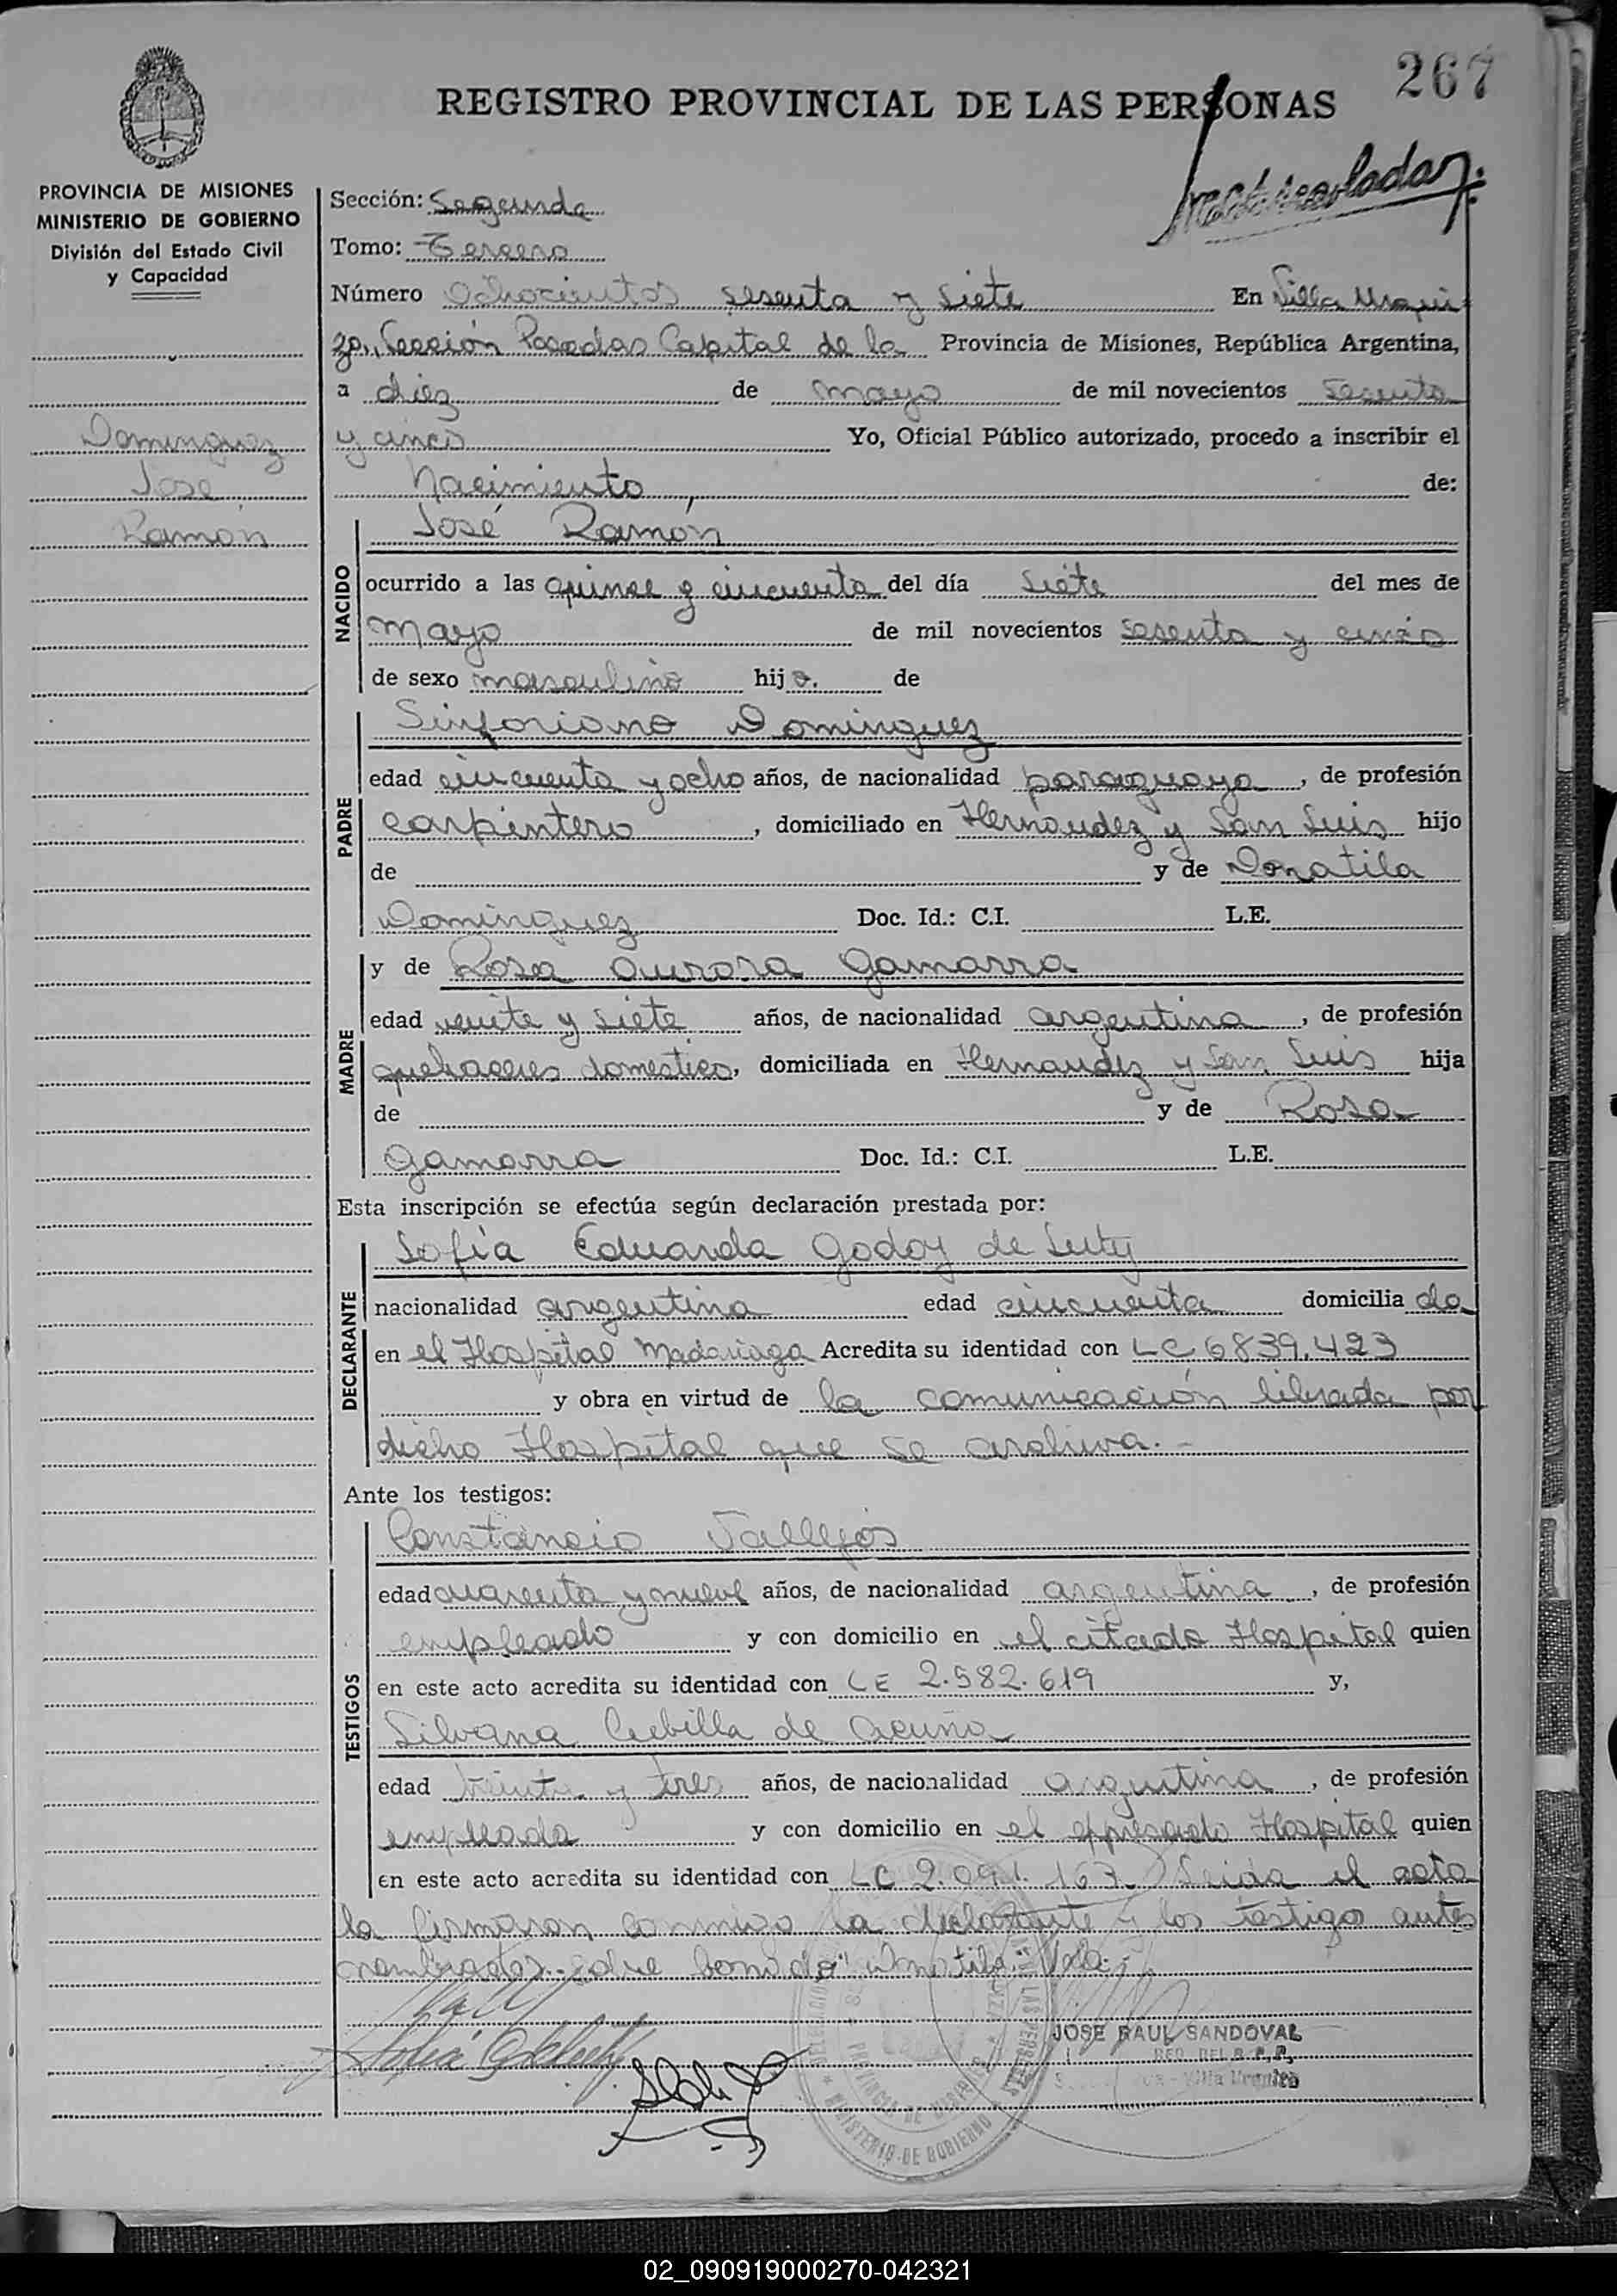 267
REGISTRO PROVINCIAL DE LAS PERSONAS
Matriculadas
PROVINCIA DE MISIONES
MINISTERIO DE GOBIERNO
División del Estado Civil
y Capacidad
Dominguez
José
Ramón
Sección: Segunda
Tomo: Tercero
Número Ochocientos sesenta y siete En Villa Urqui
za, Sección Posadas Capital de la Provincia de Misiones, República Argentina,
a diez de mayo de mil novecientos sesenta
y cinco Yo, Oficial Público autorizado, procedo a inscribir el
Nacimiento de:
NACIDO
José Ramón
ocurrido a las quince y cincuenta del día siete del mes de
mayo de mil novecientos sesenta y cinco
de sexo masculino hijo. de
PADRE
Sinforiano Dominguez
edad cincuenta y ocho años, de nacionalidad paraguaya, de profesión
carpintero, domiciliado en Hernandez y San Luis hijo
de y de Donatila
Dominguez Doc. Id.: C.I. L.E.
MADRE
y de Rosa Aurora Gamarra
edad veinte y siete años, de nacionalidad argentina, de profesión
quehaceres domestico, domiciliada en Hernandez y San Luis hija
de y de Rosa
Gamarra Doc. Id.: C.I. L.E.
Esta inscripción se efectúa según declaración prestada por:
DECLARANTE
Sofía Eduarda Godoy de
nacionalidad argentina edad cincuenta domiciliada
en el Hospital Madariaga Acredita su identidad con LC 6839.423
y obra en virtud de la comunicación librada por
dicho Hospital que se archiva.-
Ante los testigos:
TESTIGOS
Constancio Vallejos
edad cuarenta y nueve años, de nacionalidad argentina, de profesión
empleado y con domicilio en el citado Hospital quien
en este acto acredita su identidad con LE 2.582.619 y,
Silvana Cubilla de Acuña
edad treinta y tres años, de nacionalidad argentina, de profesión
empleada y con domicilio en el expresado Hospital quien
en este acto acredita su identidad con LC 2.091.163. Leida el acta
la firmaron conmigo la declarante y los testigo antes
nombrados.
JOSE RAUL SANDOVAL
Villa Urquiza
MINISTERIO DE GOBIERNO
02_090919000270-042321